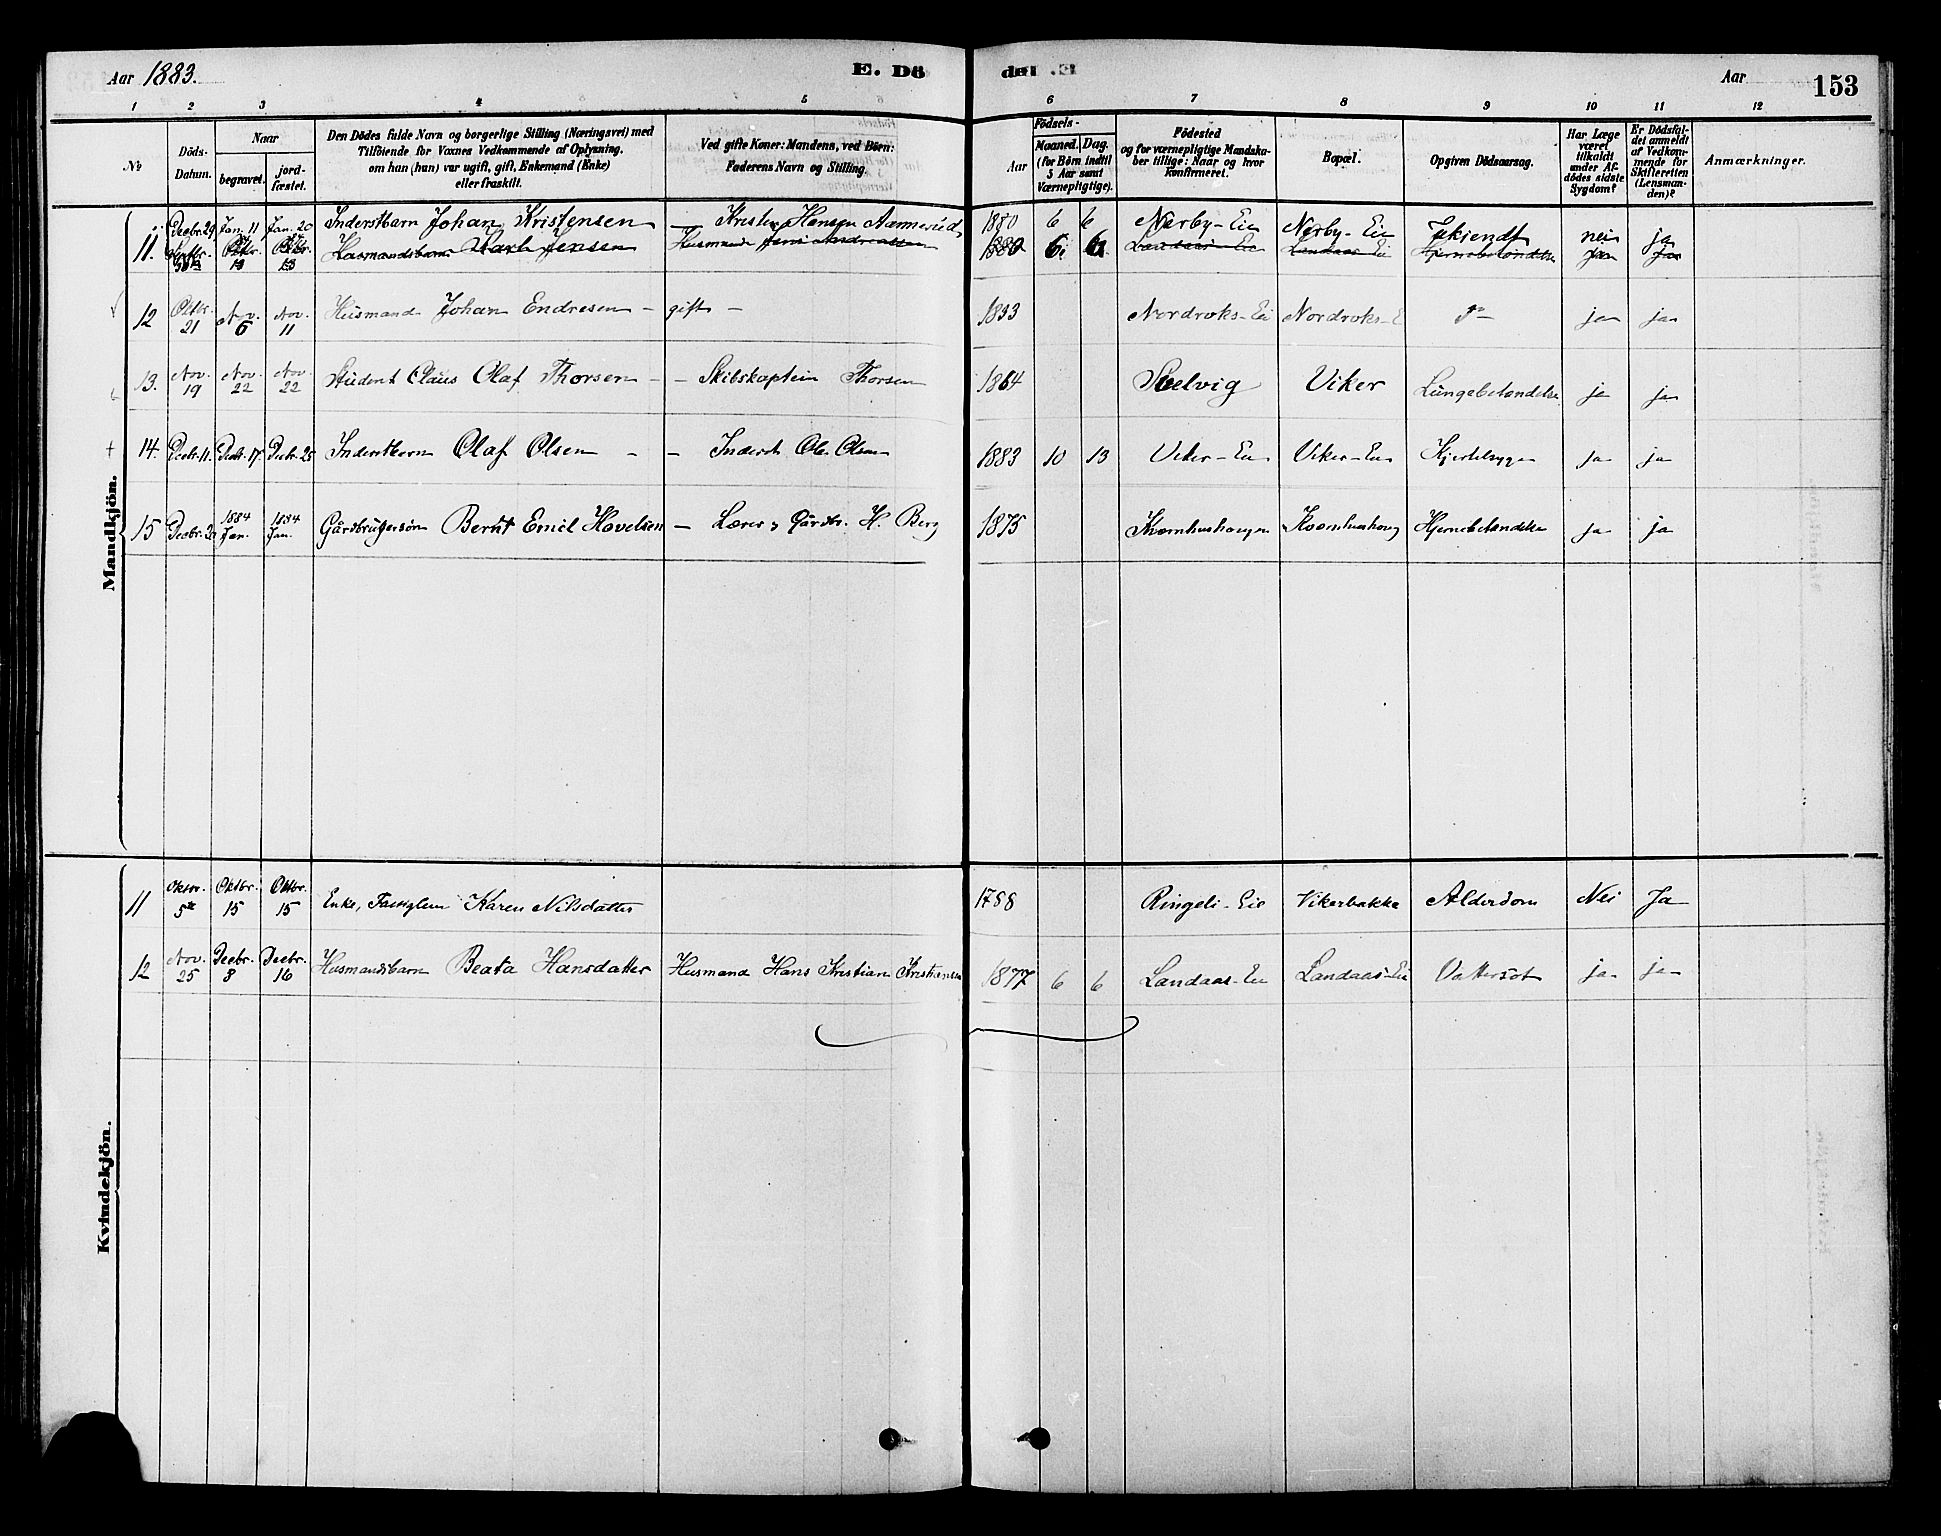 Aar 1883.
E. Dö
de. E.
Aar
153
1 2 3 4 5 6 7 8 9 10 11 12
No
Döds-Datum.
Naar
begravet.
jord-fæstet.
Den Dödes fulde Navn og borgerlige Stilling (Næringsvei) med
Tilföiende for Voxnes Vedkommende af Oplysning,
om han (hun) var ugift, gift, Enkemand (Enke)
eller fraskilt.
Ved gifte Koner: Mandens, ved Börn:
Faderens Navn og Stilling.
Födsels-
Aar
Maaned. Dag.
(for Börn indtil
5 Aar samt
Værnepligtige).
Födested
og for værnepligtige Mandska-
ber tillige: Naar og hvor
konfirmeret.
Bopæl.
Opgiven Dödsaarsag.
Har Læge
været
tilkaldt
under Af-
dödes sidste
Sygdom?
Er Dödsfal-
det anmeldt
af Vedkom-
mende for
Skifteretten
(Lensman-
den)?
Anmærkninger.
Mandkjön.
Decbr. 29 Jan. 11 Jan. 20 Inderstbarn Johan Kristensen — Kristen Hansen 1880 6 6 Nærby-Eie Nærby-Eie Ukjendt nei ja
11. Oktbr. 13 Oktbr. 13 Husmandsbarn Karl Jensen Husmand Jens Andreassen 1880 6 6 Landaas-Eie Landaas-Eie Hjernebetændelse ja ja
12 Oktbr. 21 Nov. 6 Nov. 11 Husmand Johan Endresen — gift — 1833 Nordroks-Ei Nordroks-E ja ja
13. Nov. 19 Nov. 22 Nov. 22 Student Claus Olaf Thorsen — — Skibskaptein Thorsen 1864 Svelvig Viker Lungebetændelse ja ja
14. Decbr. 11. Decbr. 17. Decbr. 25 Inderstbarn Olaf Olsen — — Inderst Ole Olsen 1883 10 13 Viker-Eie Viker-Eie Hjertesyge ja ja
15 Decbr. 1884 Jan. 1884 Jan. Gårdbrugersøn Bernt Emil Hovelsen — Lærer & Gårdbr. H. Berg 1875 Kvernhushaugen Kvernhushaug Hjernebetændelse ja ja
Kvindekjön.
11 Oktbr. 5te Oktbr. 15 Oktbr. 15 Enke, Fattiglem Karen Nilsdatter 1788 Ringeli-Eie Vikerbakke Alderdom Nei Ja
12 Nov. 25 Decbr. 8 Decbr. 16 Husmandsbarn Beata Hansdatter Husmand Hans Kristian Kristiansen 1877 6 6 Landaas-Eie Landaas-Eie Vattersot ja ja